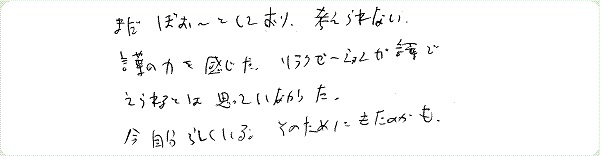 まだ ぼお〜としており、考えられない。
言葉の力を感じた。リラクゼーションが言葉で
えられるとは思っていなかった。
今自分らしくいる。そのためにきたのかも。